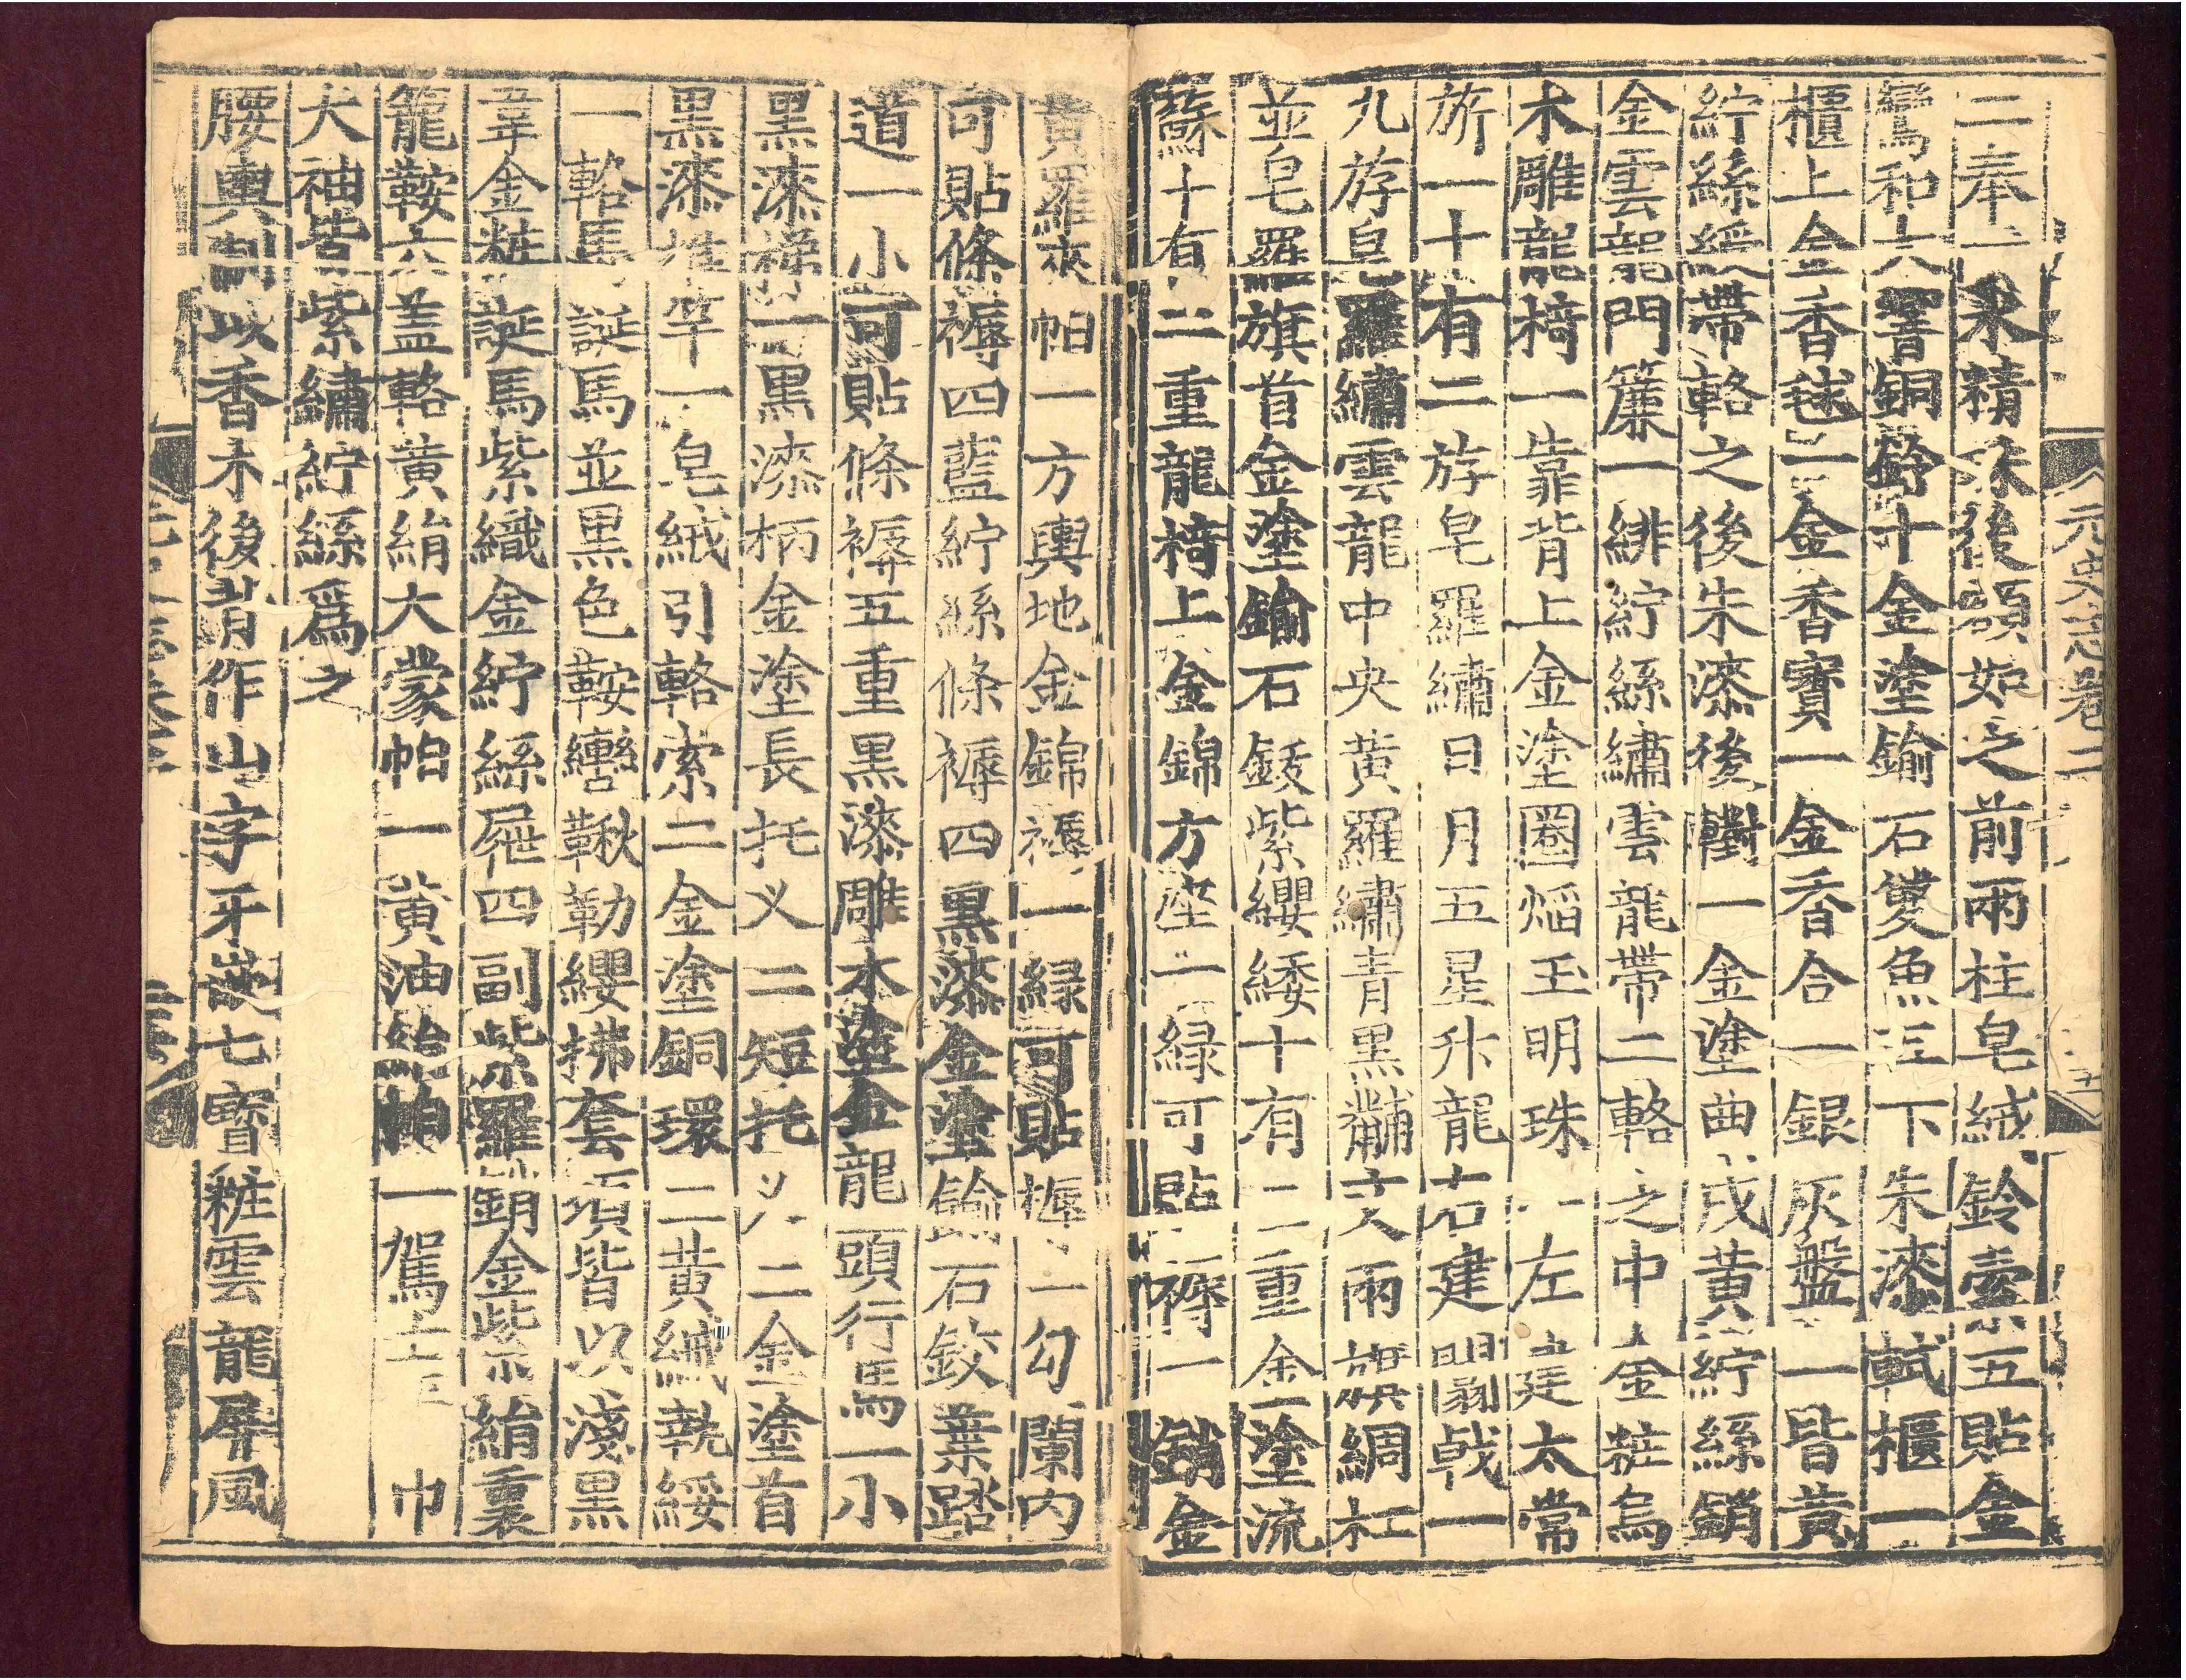 元史志卷二十
二奉一水精珠後額如之前兩柱皂絨鈴壼五貼金
鸞和大響銅鈴十金塗鍮石雙魚三下朱漆軾櫃一
櫃上金香毬二金香寶一金香合一銀灰盤一皆黃
紵絲綬帶輅之後朱漆後轛一金塗曲戍黃紵絲銷
金雲龍門簾一緋紵絲繡雲龍帶二輅之中金粧烏
木雕龍椅一靠背上金塗圈焰玉明珠一左建太常
旂一十有二斿皂羅繡日月五星升龍右建闟戟一
九斿皂羅繡雲龍中央黃羅繡青黑黼文兩旗綢杠
並皂羅旗首金塗鍮石鈸紫纓緌十有二重金塗流
蘇十有二重龍椅上金錦方座一綠可貼褥一銷金
黃羅夾帕一方輿地金錦褥一綠可貼褥一勾闌內
可貼條褥四藍紵絲條褥四黑漆金塗鍮石鉸葉踏
道一小可貼條褥五重黑漆雕木塗金龍頭行馬一小
黑漆梯一黑漆柄金塗長托义二短托义二金塗首
黑漆推竿一皂絨引輅索二金塗銅環二黃絨執綏
一輅馬誕馬並黑色鞍轡鞦勒纓拂套項皆以淺黑
韋金粧誕馬紫織金紵絲屜四副紫羅銷金紫絹裏
籠鞍六蓋輅黃絹大蒙帕一黃油絹帕一駕士巾
大袖皆紫繡紵絲爲之
腰輿制以香木後背作山字牙嵌七寳粧雲龍屏風